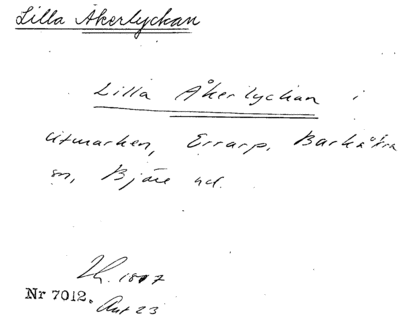 Lilla Åkerlyckan
Lilla Åkerlyckan i
utmarken, Errarp, Barkåkra
sn, Bjäre hd.
1807
Nr 7012.
Akt 23